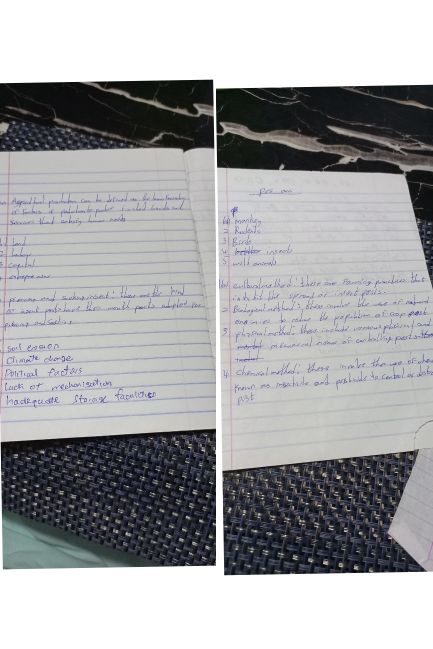 Agricultural production can be defined as the transforming
of factors of production to goods and
services that satisfy human needs
land
labour
capital
entrepreneur
piercing and sucking insect: these are the kind
of insect pest whose mouth parts adapted for
piercing and sucking
soil erosion
Climate change
Political factors
Lack of mechanisation
Inadequate Storage facilities
Monkey
2 Rodents
3 Birds
4 insects
5 wild animals
cultural method: these are farming practices that
inhibit the spread or infest pests.
2 Biological method: these involve the use of natural
enemies to reduce the population of crop pest
3 physical method: these include physical and
mechanical means of controlling pest
4 chemical method: these involve the use of
known as insecticide and pesticide to control or
pest